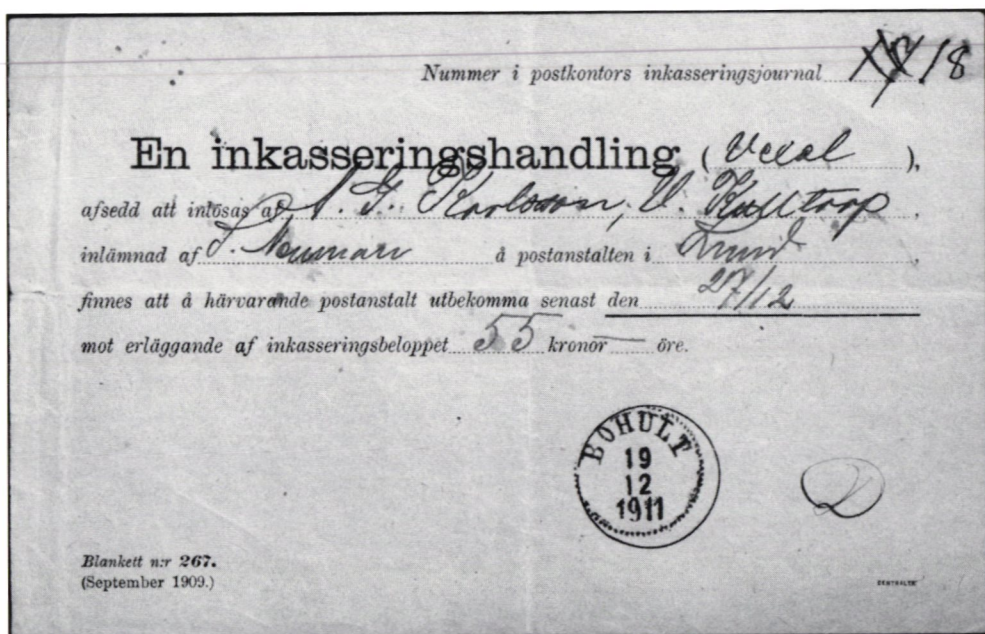 Nummer i postkontors inkasseringsjournal 18
En inkasseringshandling (Vexel),
afsedd att inlösas af A. G. Karlsson, V. Kulltorp,
inlämnad af Neuman å postanstalten i Lund,
finnes att å härvarande postanstalt utbekomma senast den 27/12
mot erläggande af inkasseringsbeloppet 55 kronor — öre.
BOHULT
19
12
1911
Blankett n:r 267.
(September 1909.)
CENTRALTR